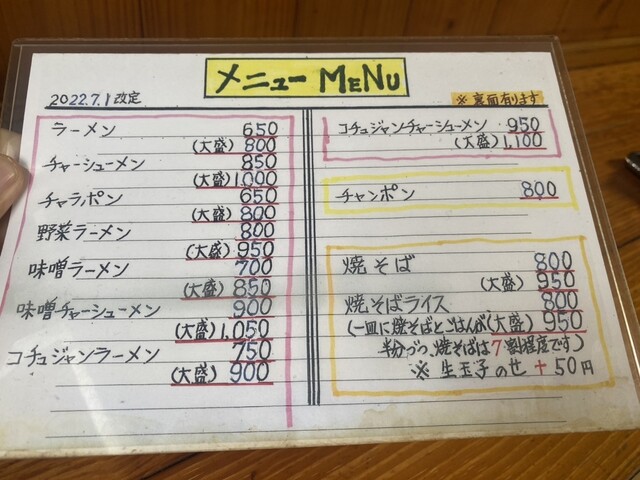 メニュー MENU
2022.7.1改定
※裏面有ります
ラーメン 650
(大盛) 800
チャーシューメン 850
(大盛) 1,000
チャラポン 650
(大盛) 800
野菜ラーメン 800
(大盛) 950
味噌ラーメン 700
(大盛) 850
味噌チャーシューメン 900
(大盛) 1,050
コチュジャンラーメン 750
(大盛) 900
コチュジャンチャーシューメン 950
(大盛) 1,100
チャンポン 800
焼そば 800
(大盛) 950
焼そばライス 800
(一皿に焼そばとごはんが (大盛) 950
半分づつ、焼そばは7割程度です)
※ 生玉子のせ +50円